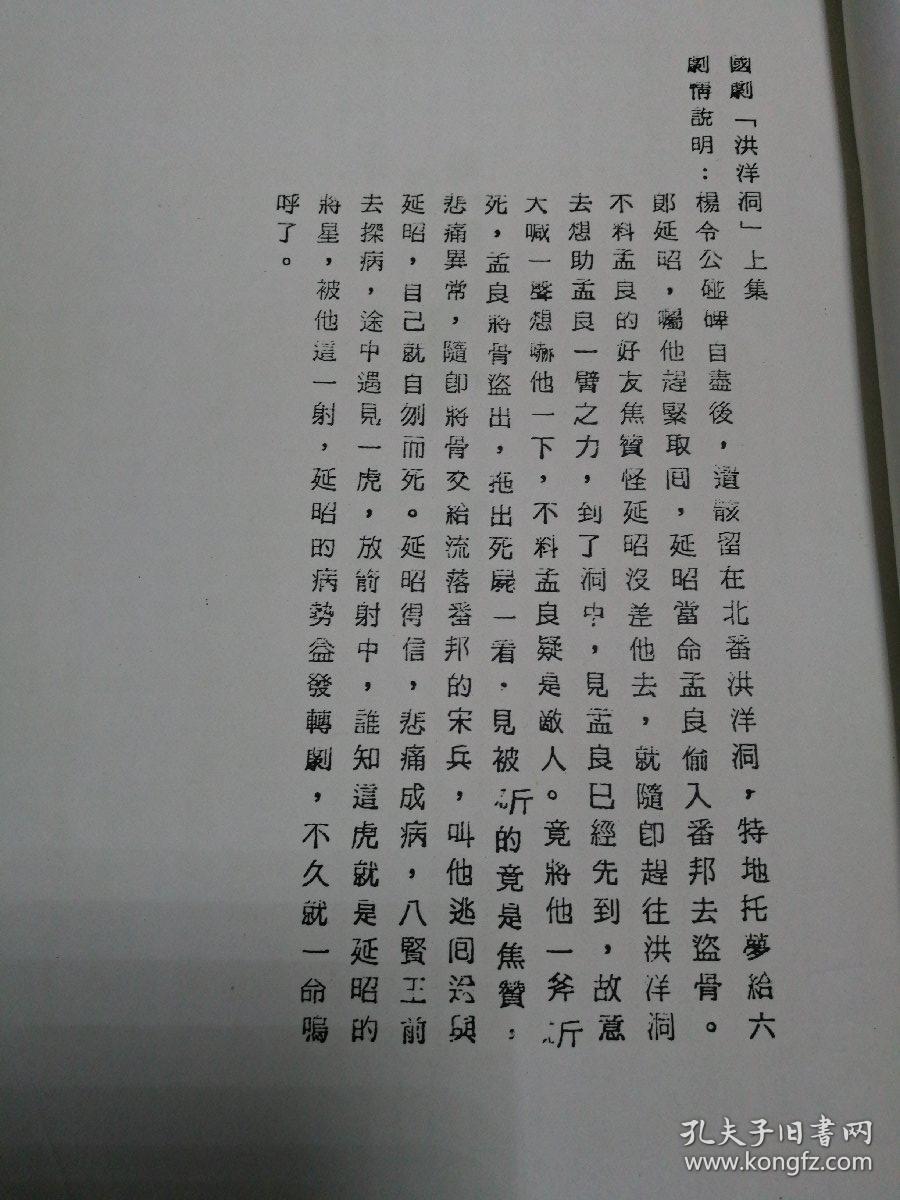 國劇「洪洋洞」上集
劇情說明：楊令公碰碑自盡後，遺骸留在北番洪洋洞，特地托夢給六
郎延昭，囑他趕緊取回，延昭當命孟良偷入番邦去盜骨。
不料孟良的好友焦贊怪延昭沒差他去，就隨即趕往洪洋洞
去想助孟良一臂之力，到了洞中，見孟良已經先到，故意
大喊一聲想嚇他一下，不料孟良疑是敵人。竟將他一斧斫
死，孟良將骨盜出，拖出死屍一看．見被斫的竟是焦贊，
悲痛異常，隨即將骨交給流落番邦的宋兵，叫他逃回送與
延昭，自己就自刎而死。延昭得信，悲痛成病，八賢王前
去探病，途中遇見一虎，放箭射中，誰知這虎就是延昭的
將星，被他這一射，延昭的病勢益發轉劇，不久就一命嗚
呼了。
孔夫子旧书网
www.kongfz.com